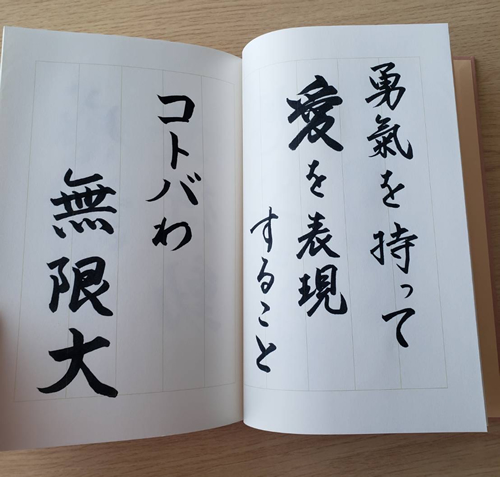 勇氣を持って
愛を表現
すること
コトバわ
無限大